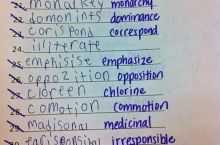 21. monalkey monarchy
22. domonints dominance
23. corispond correspond
24. illiterate
25. emphisise emphasize
26. oppozition opposition
27. cloreen chlorine
28. comotion commotion
29. madisonal medicinal
irresponsible